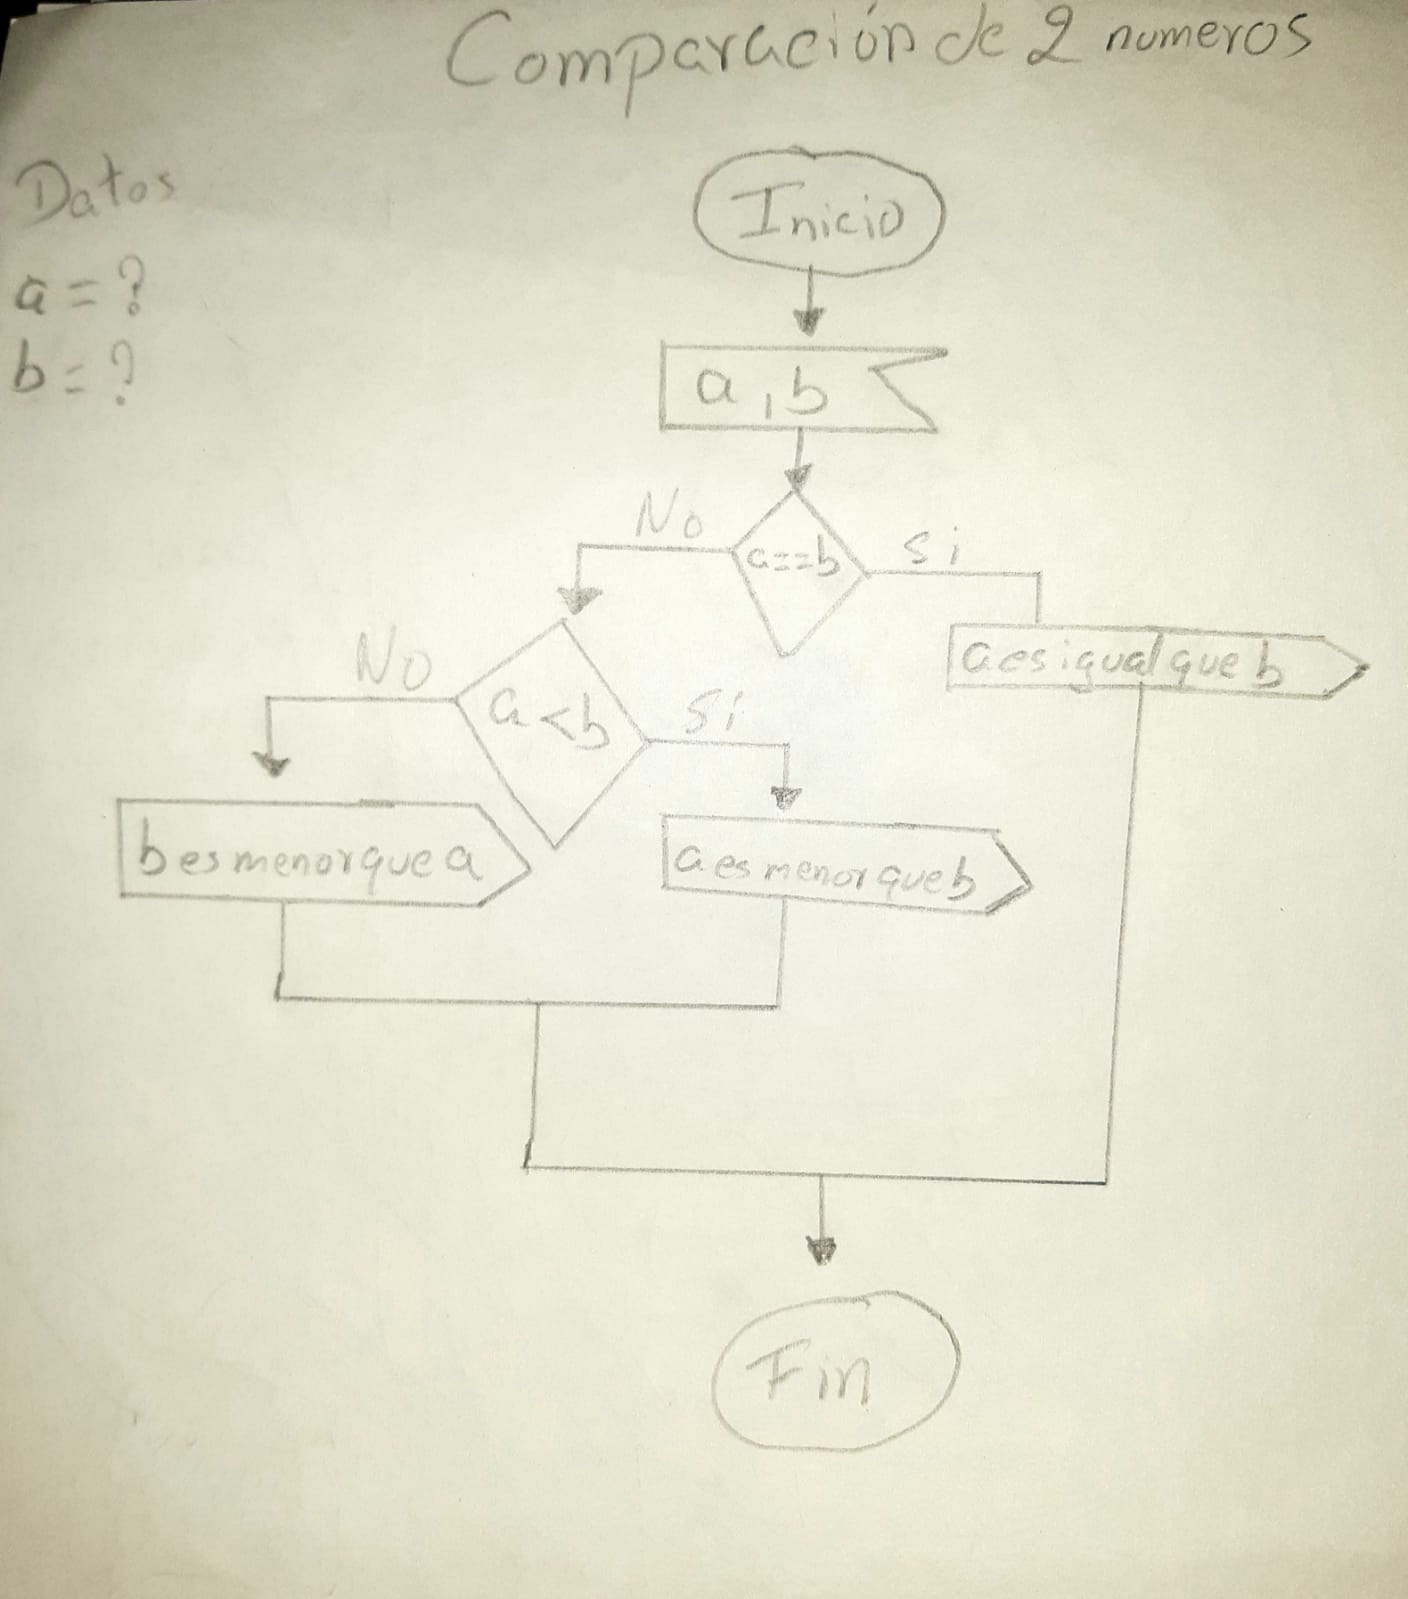 Comparación de 2 numeros
Datos
a = ?
b = ?
Inicio
a, b
a==b
No
Si
a es igual que b
a<b
No
Si
b es menor que a
a es menor que b
Fin